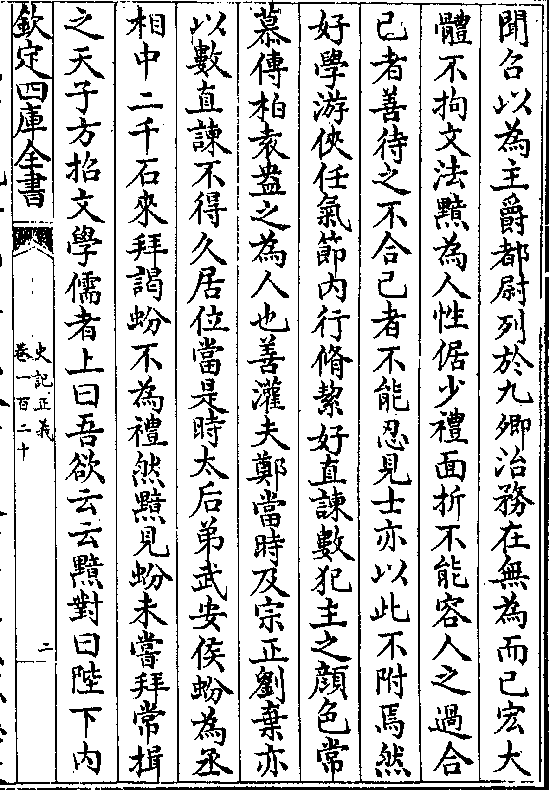 聞召以為主爵都尉列於九卿治務在無為而已宏大
體不拘文法黯為人性倨少禮面折不能容人之過合
己者善待之不合己者不能忍見士亦以此不附焉然
好學游俠任氣節内行脩絜好直諫數犯主之顔色常
慕傅柏袁盎之為人也善灌夫鄭當時及宗正劉棄亦
以數直諫不得久居位當是時太后弟武安侯蚡為丞
相中二千石來拜謁蚡不為禮然黯見蚡未嘗拜常揖
之天子方招文學儒者上曰吾欲云云黯對曰陛下内
欽定四庫全書
史記正義
卷一百二十
二